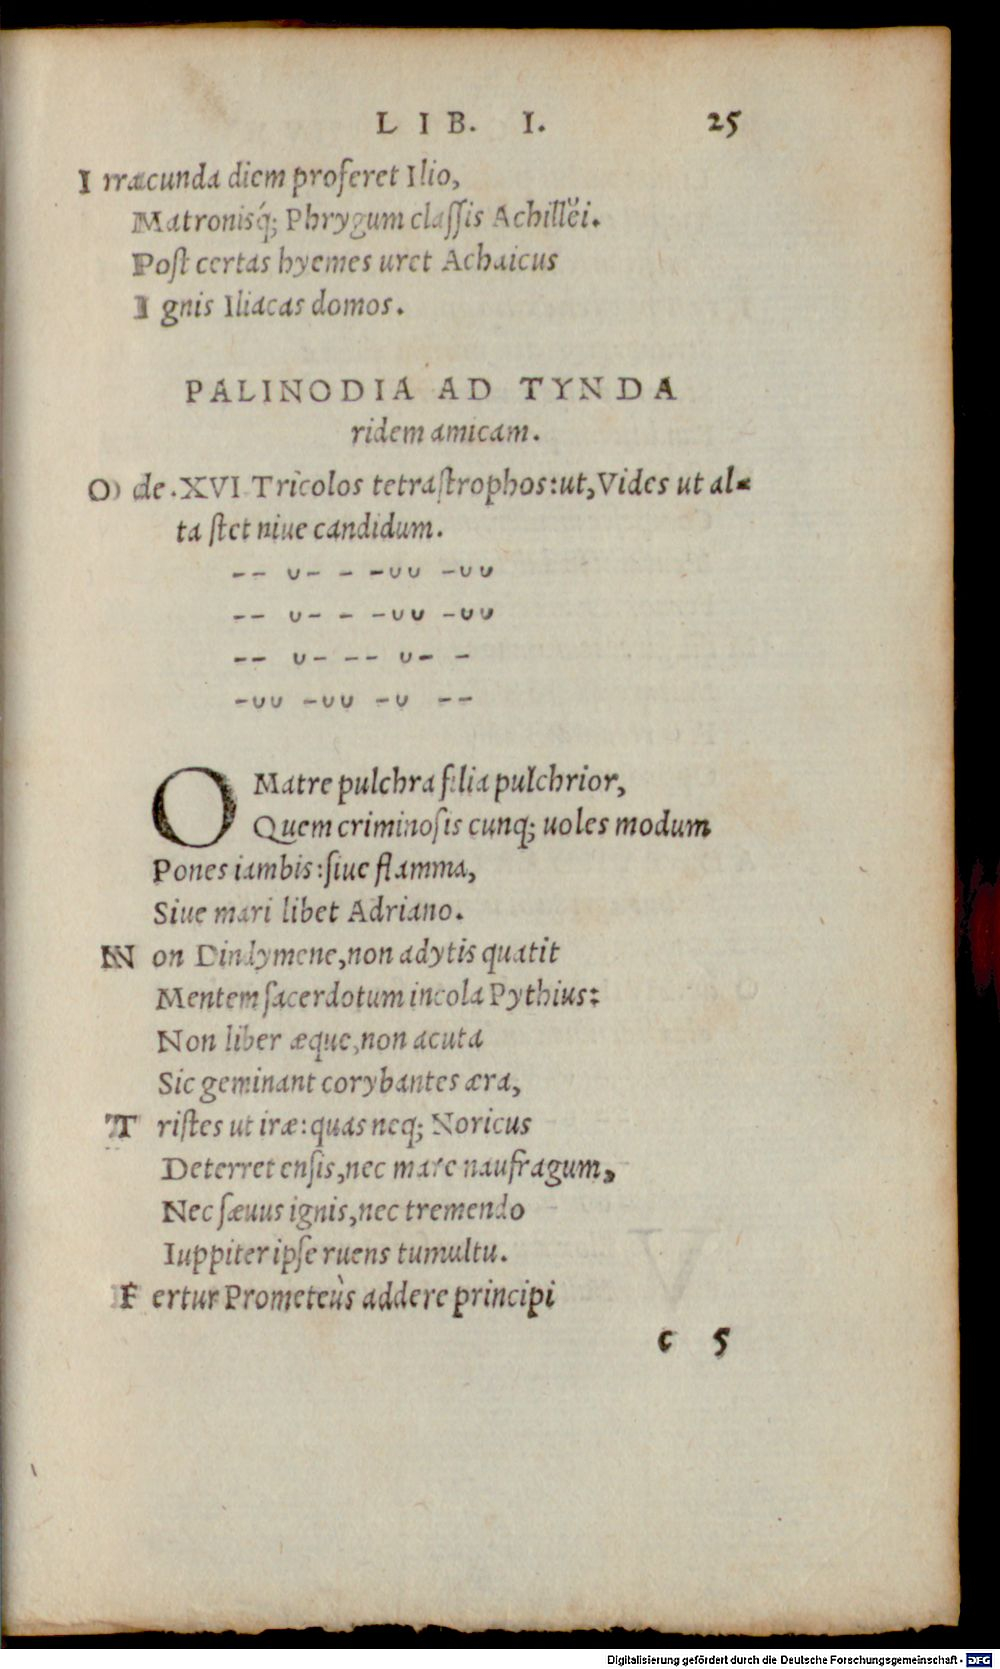 LIB. I. 25
Irracunda diem proferet Ilio,
Matronisq́; Phrygum classis Achillëi.
Post certas hyemes uret Achaicus
Ignis Iliacas domos.
PALINODIA AD TYNDA
ridem amicam.
Ode. XVI Tricolos tetrastrophos: ut, Vides ut al-
ta stet niue candidum.
-- ∪- - -∪∪ -∪∪
-- ∪- - -∪∪ -∪∪
-- ∪- -- ∪- -
-∪∪ -∪∪ -∪ --
O Matre pulchra filia pulchrior,
Quem criminosis cunq; uoles modum
Pones iambis: siue flamma,
Siue mari libet Adriano.
Non Dindymene, non adytis quatit
Mentem sacerdotum incola Pythius:
Non liber æque, non acuta
Sic geminant corybantes æra,
Tristes ut iræ: quas neq; Noricus
Deterret ensis, nec mare naufragum,
Nec sæuus ignis, nec tremendo
Iuppiter ipse ruens tumultu.
Fertur Prometeùs addere principi
c 5
Digitalisierung gefördert durch die Deutsche Forschungsgemeinschaft - DFG